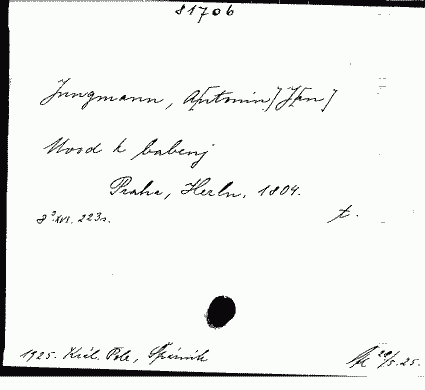 81706
Jungmann, A[ntonin] J[an]
Uvod k babenj
Praha, Herln. 1804.
8° XVI. 223s. t.
1925. Král. Pole, Špírník 28/5.25.